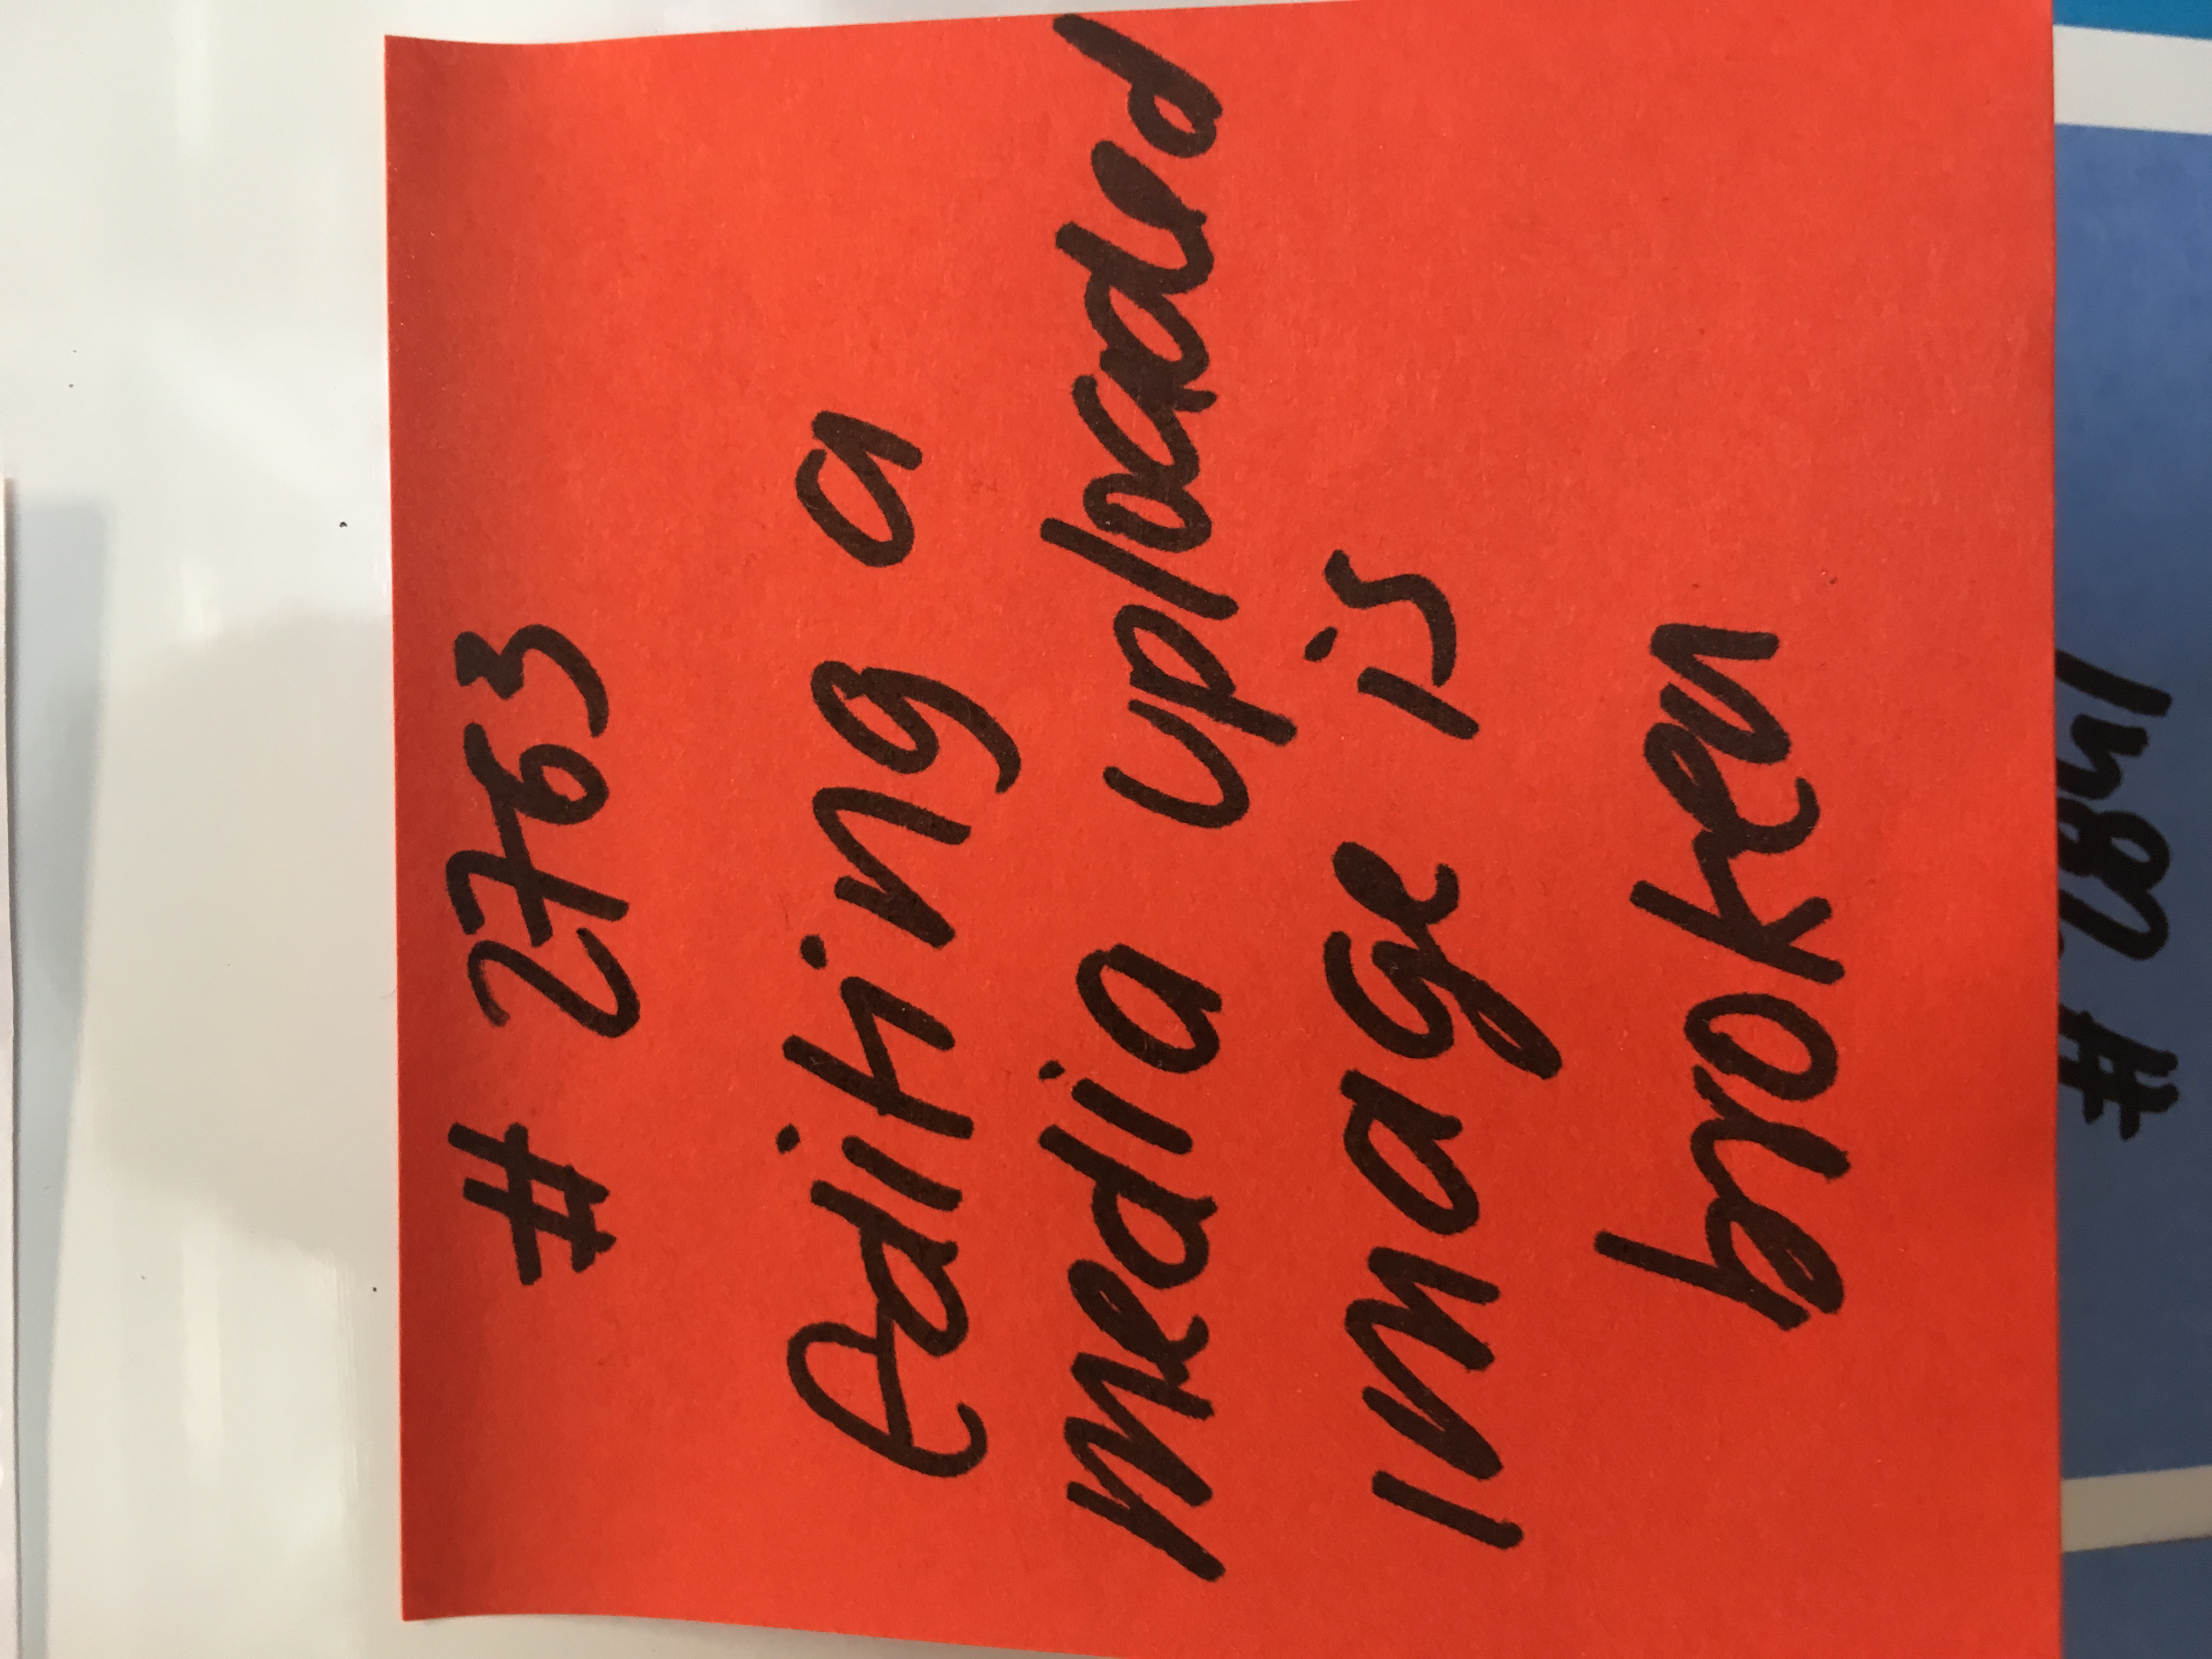 # 2763
Editing a
media uploaded
image is
broken
# 2841